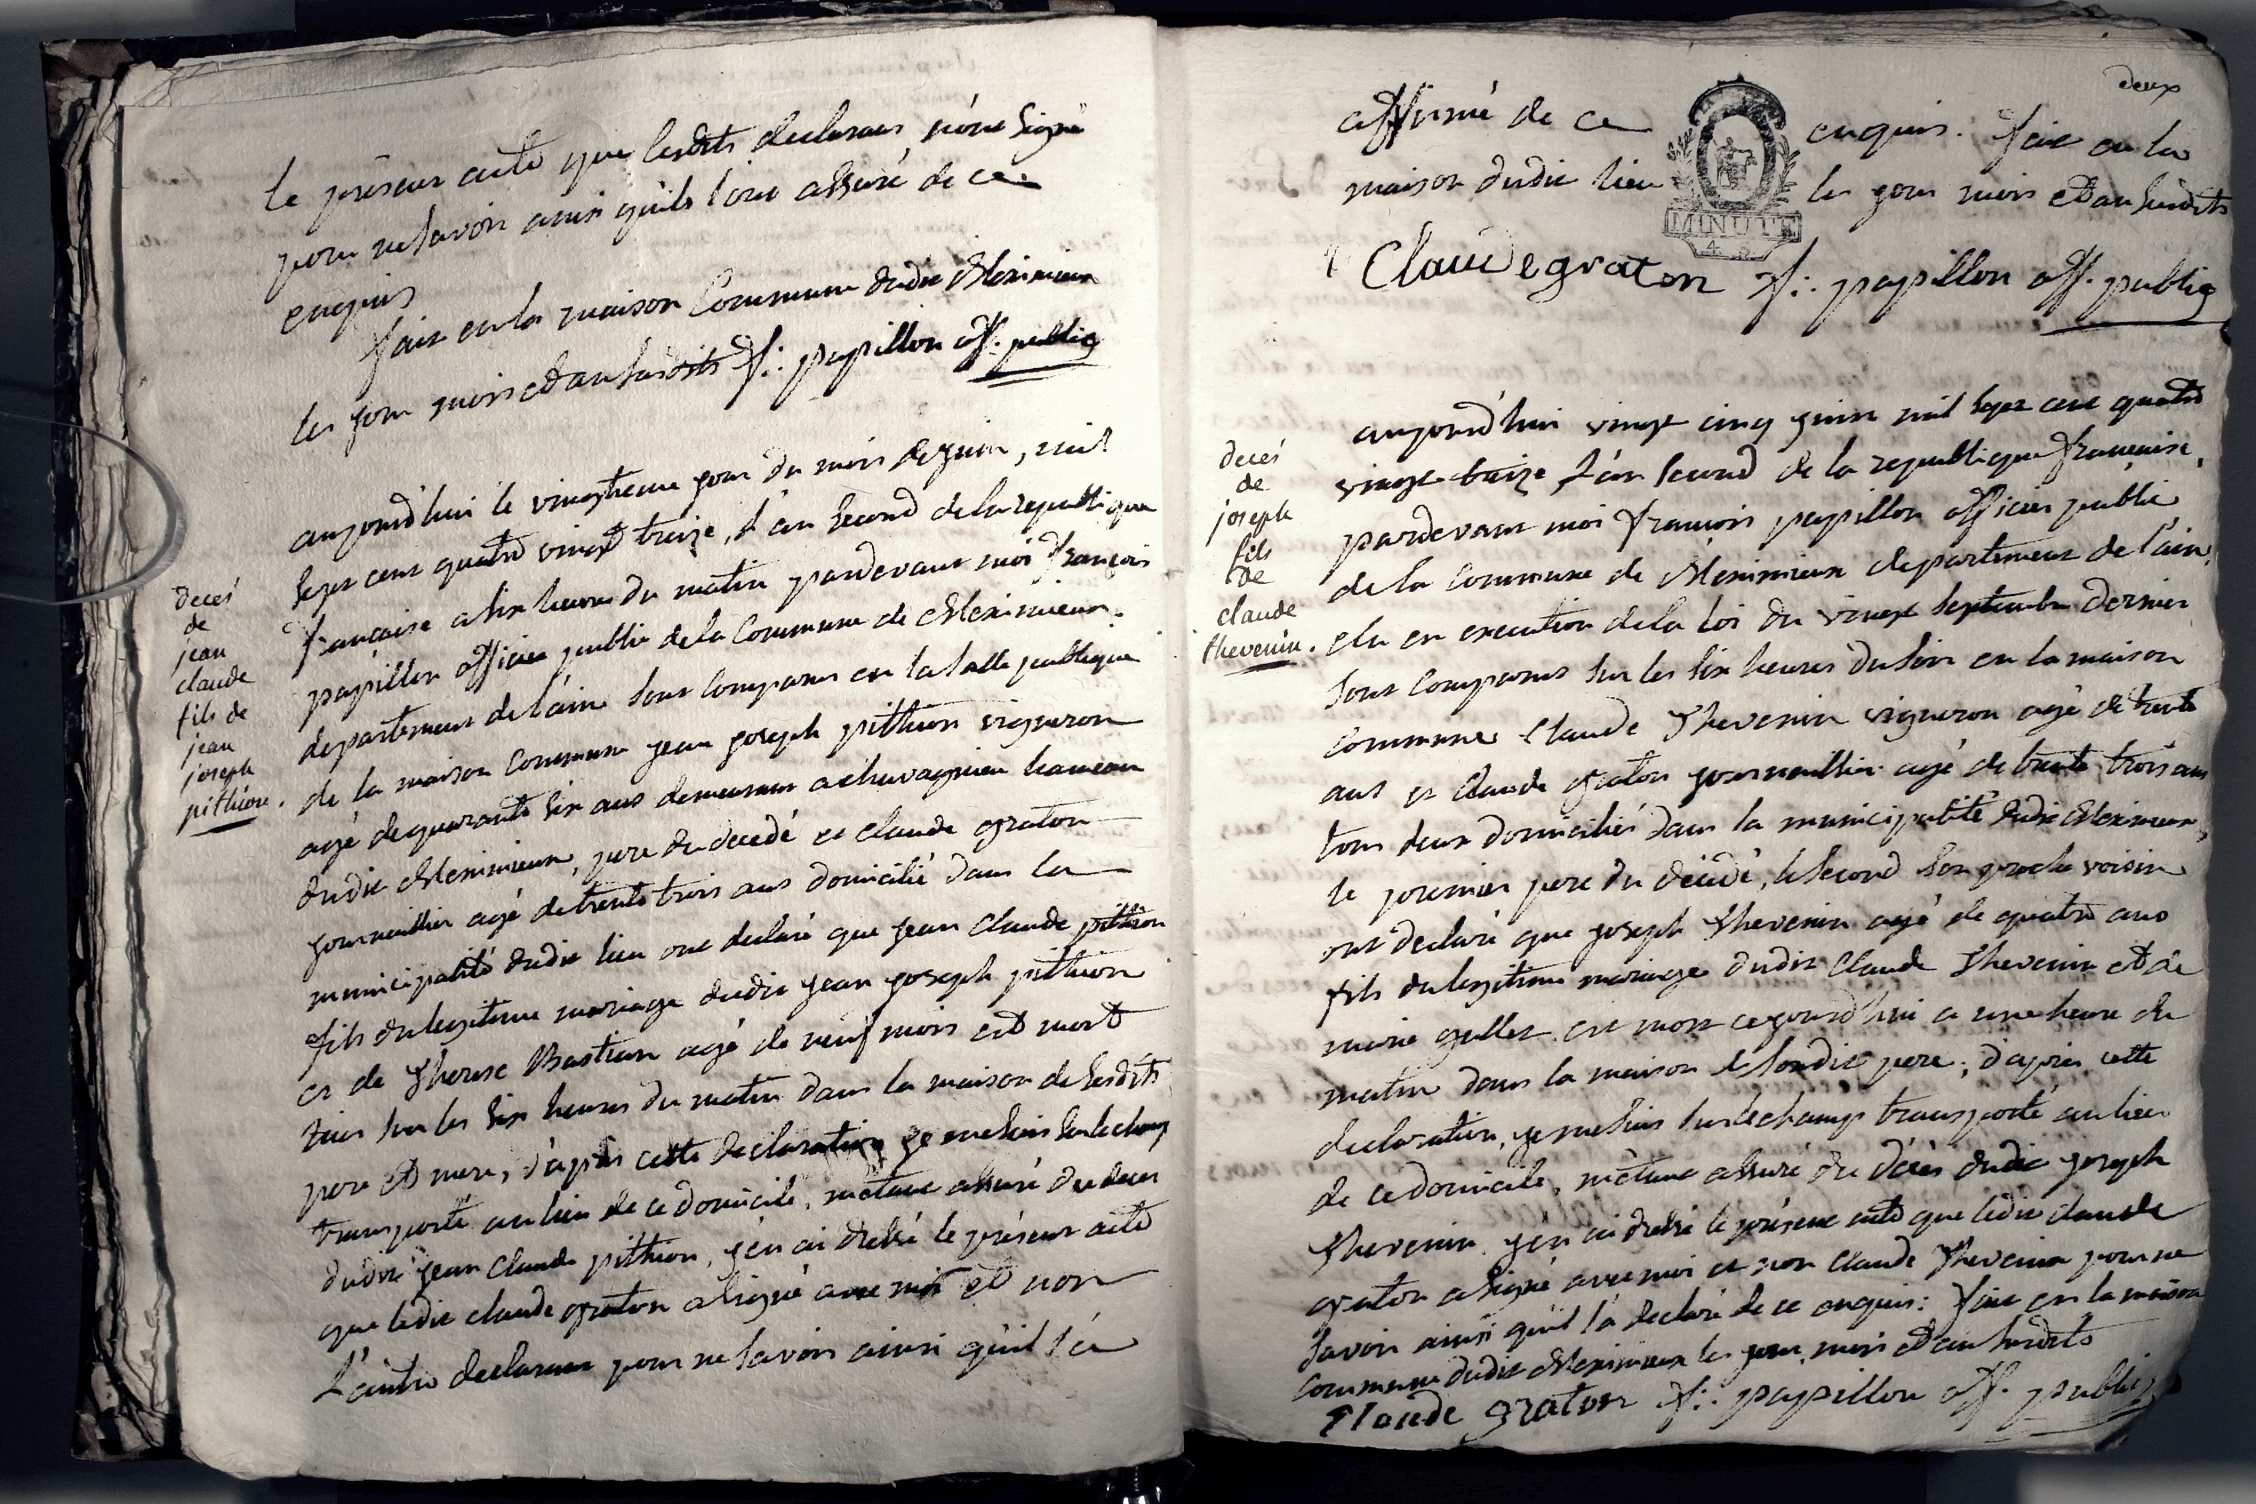 le présent acte que lesdits declarans n'ont signé
pour ne savoir ainsi qu'ils l'ont assuré de ce
enquis
fait en la maison Commune dudit Meximieux
les jour mois et an susdits f: papillon off. public
decés
de
jean
claude
fils de
jean
joseph
pithion.
aujourd'hui le vingtieme jour du mois de juin, mil
sept cent quatre vingt treize, l'an second de la republique
française a six heures du matin pardevant moi françois
papillon officier public de la Commune de Meximieux
departement de l'ain sont comparus en la salle publique
de la maison commune jean joseph pithion vigneron
agé de quarante six ans demeurant a chavagnieu hameau
dudit Meximieux, pere du decedé et claude graton
journaillier agé de trente trois ans domicilié dans la
municipalité dudit lieu ont declaré que jean claude pithion
fils du legitime mariage dudit jean joseph pithion
et de Therese Bastian agé de neuf mois est mort
hier sur les six heures du matin dans la maison de sesdits
pere et mere, d'après cette declaration je me suis sur le champ
transporté au lieu de ce domicile, m'étant assuré du deces
dudit jean claude pithion, j'en ai dressé le présent acte
que ledit claude graton a signé avec moi et non
l'autre declarant pour ne savoir ainsi qu'il l'a
deux
affirmé de ce enquis. fait en la
maison dudit lieu les jour mois et an susdits
MINUTE
4. S.
Claude graton f: papillon off. public
decés
de
joseph
fils
de
claude
thevenin.
aujourd'hui vingt cinq juin mil sept cent quatre
vingt treize l'an second de la republique française,
pardevant moi françois papillon officier public
de la commune de Meximieux departement de l'ain,
elu en execution de la loi du vingt septembre dernier
sont comparus sur les six heures du soir en la maison
commune Claude Thevenin vigneron agé de trente
ans et Claude graton journaillier agé de trente trois ans
tous deux domiciliés dans la municipalité dudit Meximieux,
le premier pere du décédé, le second son proche voisin
ont declaré que joseph Thevenin agé de quatre ans
fils du legitime mariage dudit Claude Thevenin et de
marie gullet est mort cejourd'hui a une heure du
matin dans la maison de sondit pere; d'après cette
declaration, je me suis sur le champ transporté au lieu
de ce domicile, m'étant assuré du décès dudit joseph
Thevenin j'en ai dressé le présent acte que ledit claude
graton a signé avec moi et non Claude Thevenin pour ne
savoir ainsi qu'il l'a declaré de ce enquis: fait en la maison
commune dudit Meximieux les jour, mois et an susdits
Claude graton f: papillon off. public